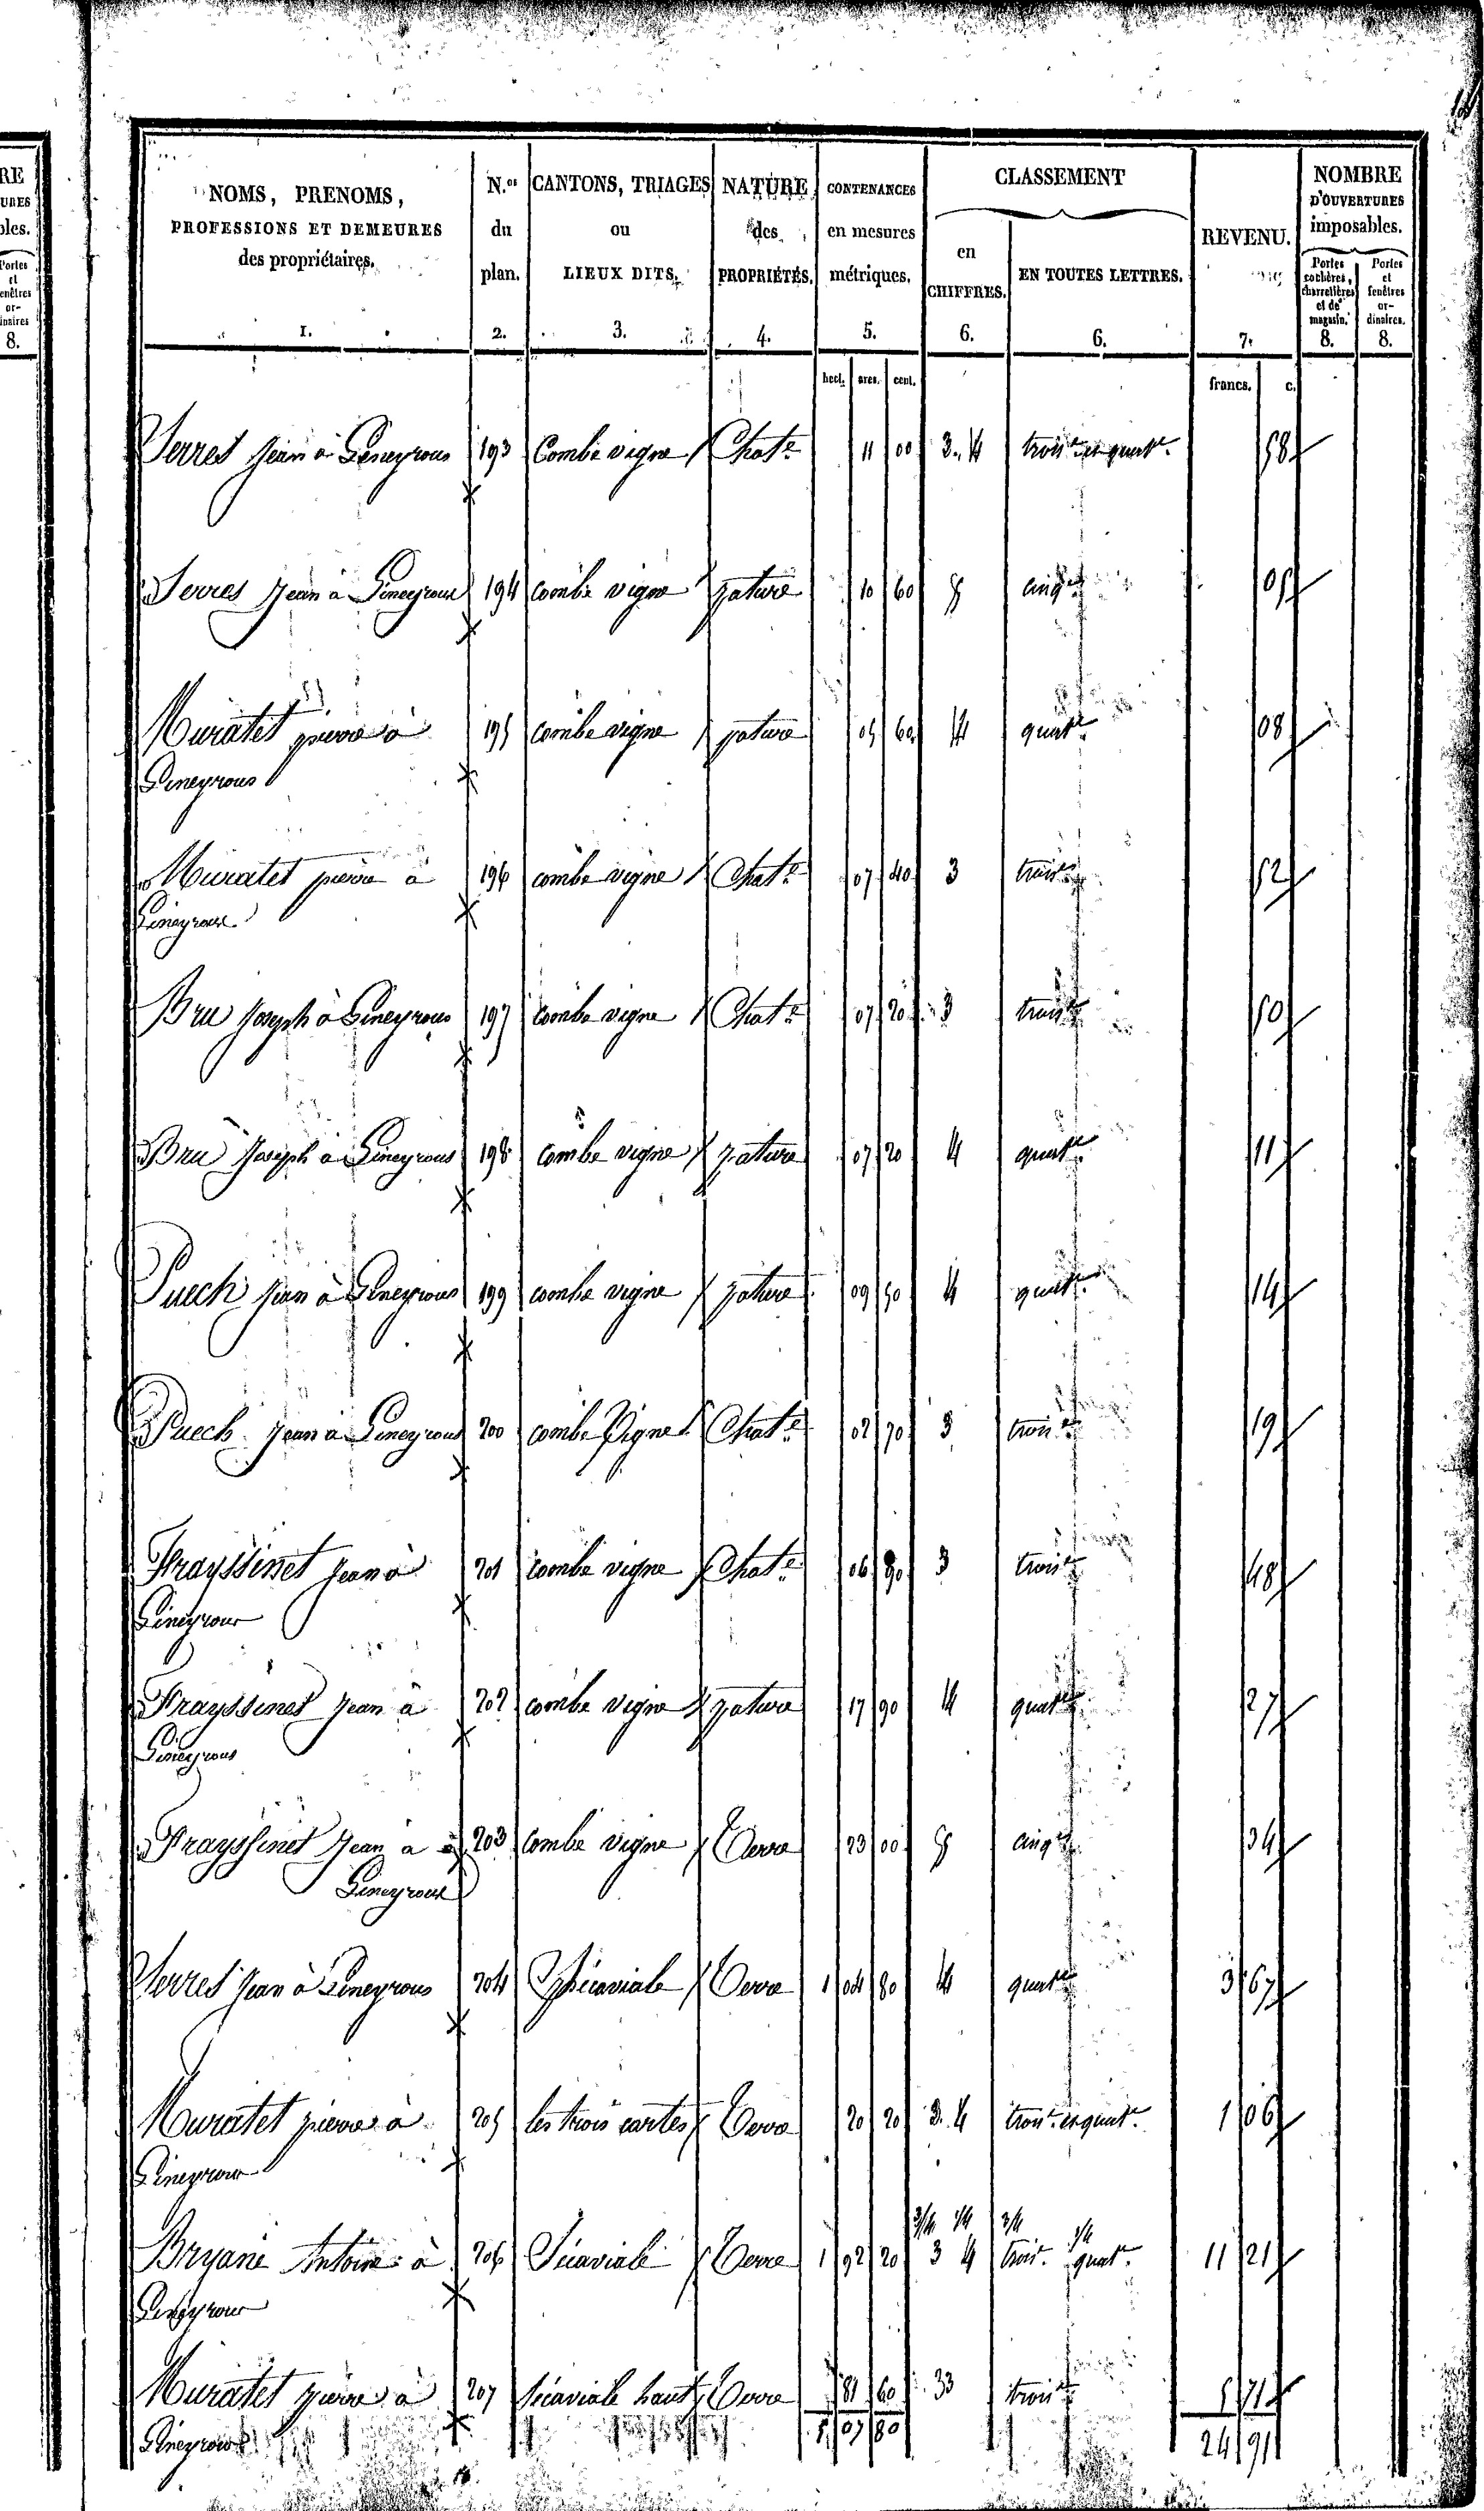 NOMS, PRENOMS, PROFESSIONS ET DEMEURES des propriétaires. 1.
N.os du plan. 2.
CANTONS, TRIAGES ou LIEUX DITS. 3.
NATURE des PROPRIÉTÉS. 4.
CONTENANCES en mesures métriques. 5.
CLASSEMENT
en CHIFFRES. 6.
EN TOUTES LETTRES. 6.
REVENU. 7.
NOMBRE D'OUVERTURES imposables.
Portes cochères, charretières et de magasin. 8.
Portes et fenêtres ordinaires. 8.
hect. ares. cent. francs. c.
Serres Jean à Gineyrous 193 Combe vigne Chat.e 11 00 3. 4 trois.e et quat.e 58
Serres Jean à Gineyrous 194 combe vigne pature 10 60 5 cinq.e 05
Muratet pierre à 195 combe vigne pature 05 60 4 quat.e 08
Gineyrous
Muratet pierre à 196 combe vigne Chat.e 07 40 3 trois.e 52
Gineyrous
Bru Joseph à Gineyrous 197 combe vigne Chat.e 07 20 3 trois.e 50
Bru Joseph à Gineyrous 198 combe vigne pature 07 20 4 quat.e 11
Puech Jean à Gineyrous 199 combe vigne pature 09 50 4 quat.e 14
Puech Jean à Gineyrous 200 combe Vigne Chat.e 02 70 3 trois.e 19
Frayssinet Jean à 201 combe vigne Chat.e 06 90 3 trois.e 48
Gineyrous
Frayssinet Jean à 202 combe vigne pature 17 90 4 quat.e 27
Gineyrous
Frayssinet Jean à 203 combe vigne Terre 23 00 5 cinq.e 34
Gineyrous
Serres Jean à Gineyrous 204 Terre 1 04 80 4 quat.e 3 67
Muratet pierre à 205 les trois cartes Terre 20 20 3. 4 trois.e et quat.e 1 06
Gineyrous
3/4 1/4 3/4 1/4
Bryane Antoine à 206 Sicaviale Terre 1 92 20 3 4 trois.e quat.e 11 21
Gineyrous
Muratet pierre à 207 Sicaviale haut Terre 81 60 33 trois.e 5 71
Gineyrous
5 07 80 24 91